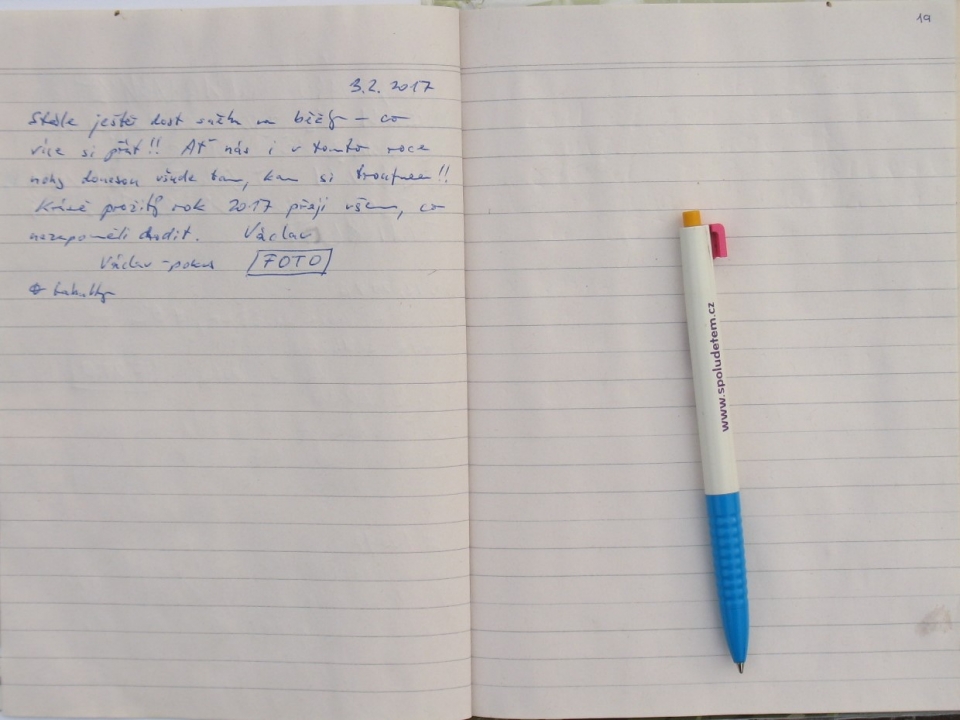 3.2. 2017
Stále ještě dost sněhu na běžky – co
více si přát!! Ať nás i v tomto roce
nohy donesou všude tam, kam si troufneme!!
Krásné prožitý rok 2017 přeji všem, co
nezapoměli chodit. Václav
Václav - pokus FOTO
19
www.spoludetem.cz